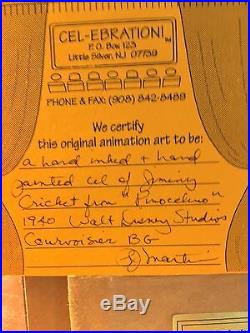 CEL-EBRATION!
P.O. Box 123
Little Silver, NJ 07739
PHONE & FAX: (908) 842-8489
We certify
this original animation art to be:
a hand inked + hand
painted cel of Jiminy
Cricket from "Pinocchio"
1940 Walt Disney Studios
Courvoisier BG
J Martin